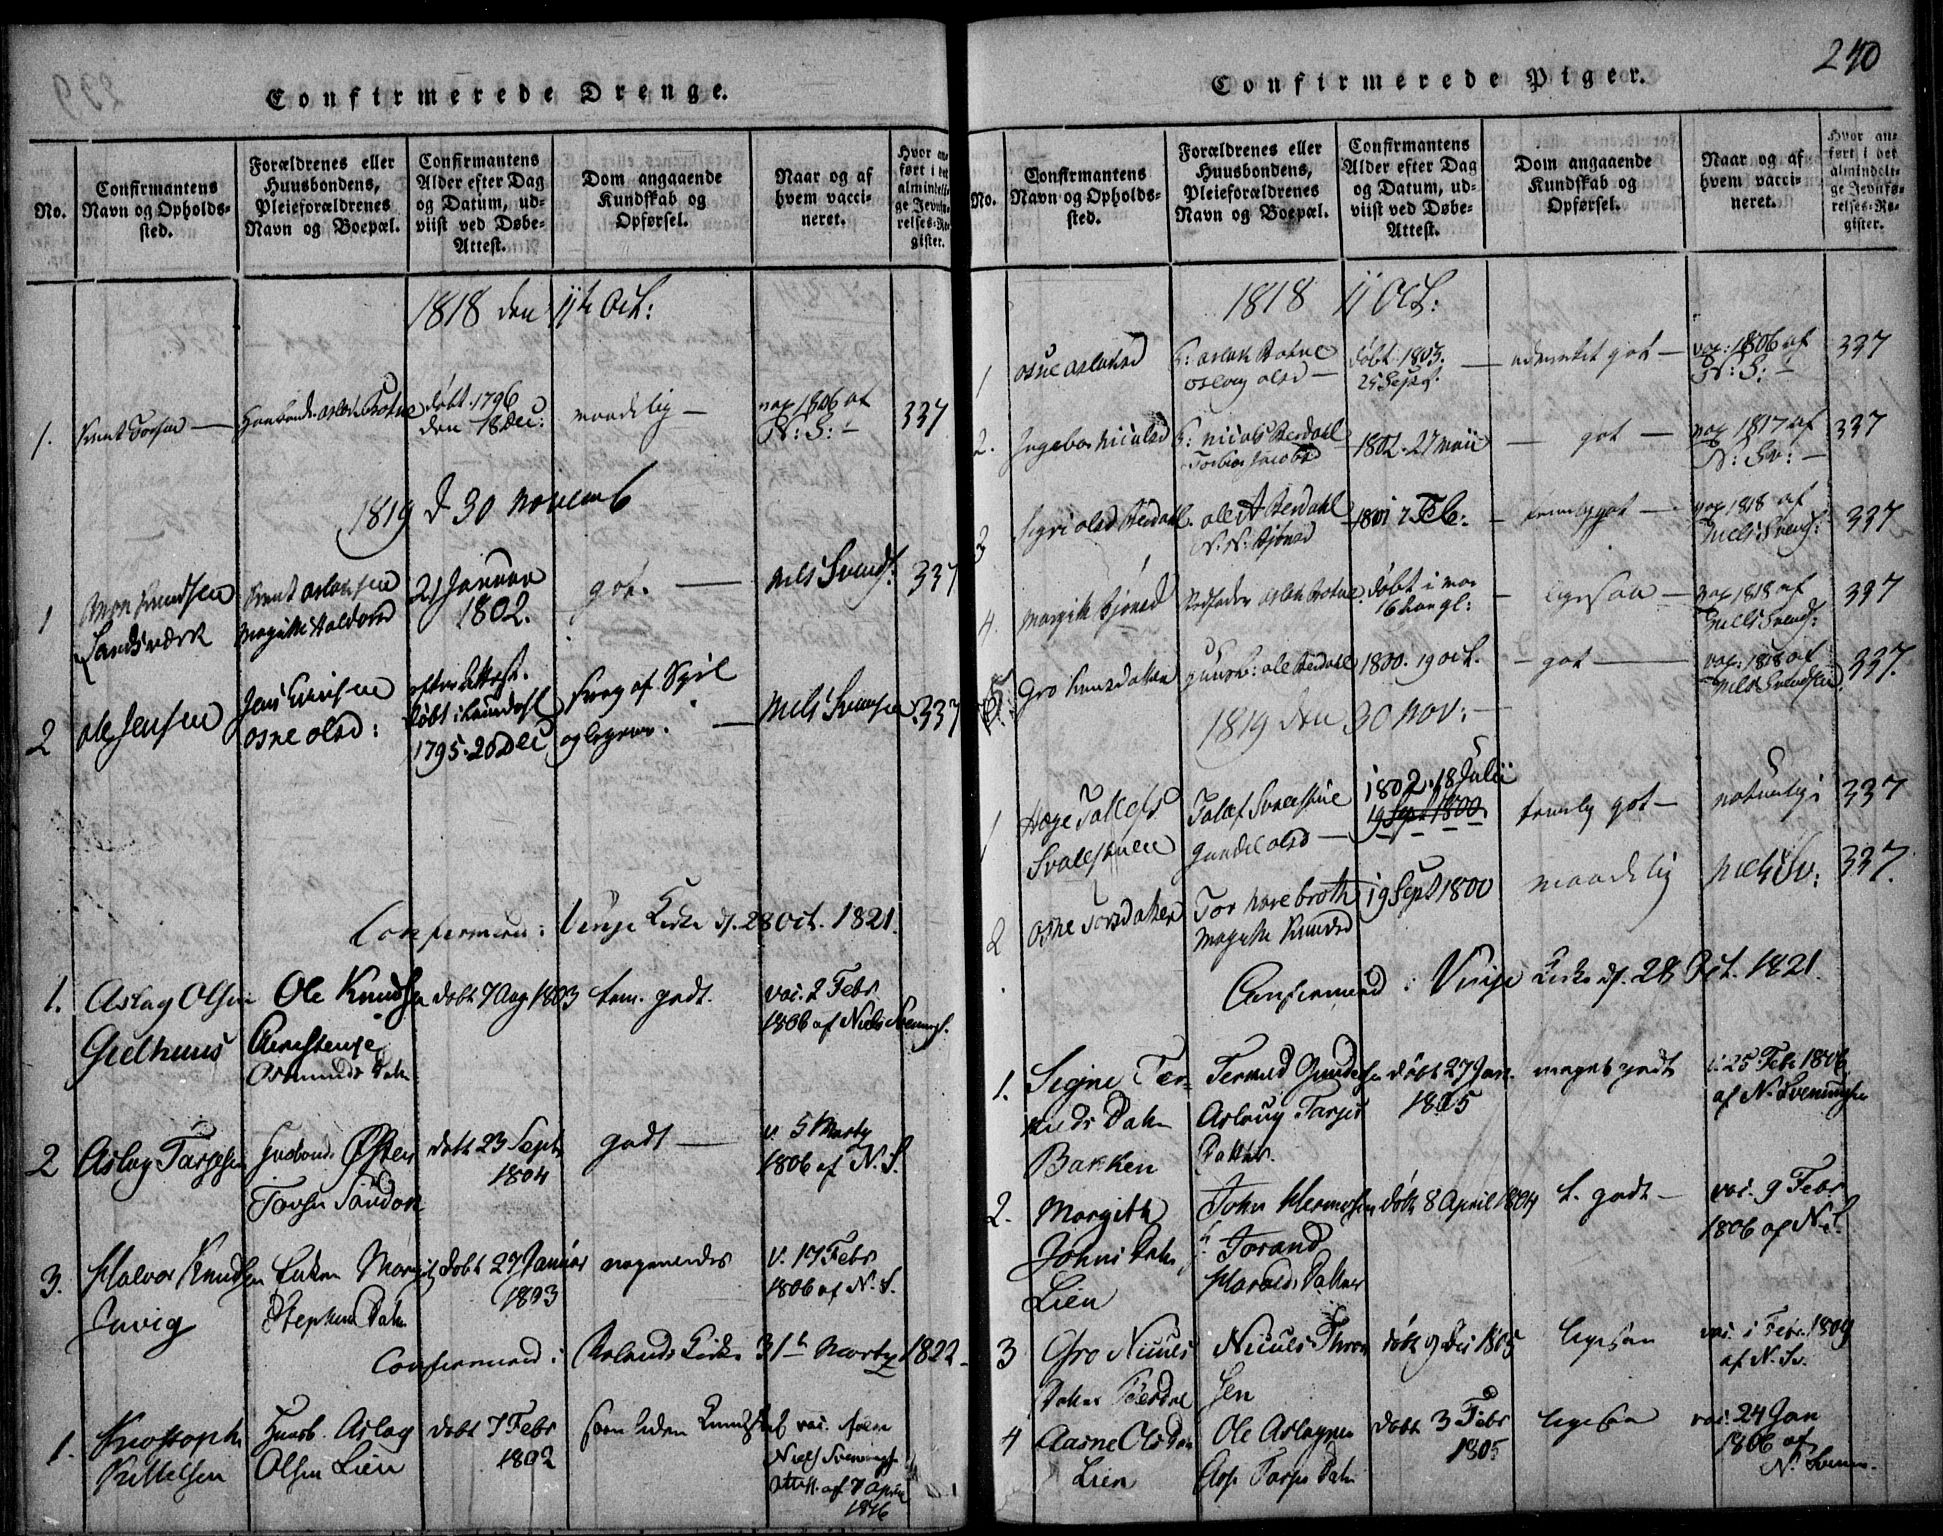 Confirmerede Drenge.
No.
Confirmantens
Navn og Opholds-
sted.
Forældrenes eller
Huusbondens,
Pleieforældrenes
Navn og Boepæl.
Confirmantens
Alder efter Dag
og Datum, ud-
viist ved Døbe-
Attest.
Dom angaaende
Kundskab og
Opførsel.
Naar og af
hvem vacci-
neret.
Hvor an-
ført i det
almindeli-
ge Jevnfø-
relses-Re-
gister.
1818 den 11te Oct:
1. Knut
døbt. 1796
den 18 Dec:
maadelig —
vax 1806 af
N: S: —
337
1819 d 30 Novemb
1
Knudsen
Sandsværk
Knut Aslaksen
Margithe Haldorsd
21 Januar
1802.
got. —
Nels Svends.
337
2 Ole Jensen
Jens
Osne Olsd:
efter Attest.
døbt i
1795. 20 Dec
svag af
—
Niels Svensen
337
Confirmeret i Vinje Kirke d. 28 Oct. 1821.
1. Aslag Olsen
Ole Knudsen
Osmunds Datter
døbt 7 Aug 1803
tem. godt.
vac. 2 Febr.
1806 af Niels Svenings.
2 Aslag Targesen
Husbond Østen
Torsen
døbt 23 Sept
1804
godt —
v. 5 Marty
1806 af N. S.
3. Halvor Knudsen
Enken Margit
Stephens Datr
døbt 27 Januar
1803
nogenledes
v. 17 Febr
1806 af N. S.
Confirmered i Rolands Kirke 31te Marty 1822.
1. Christoph
Kittelsen
Huusb. Aslag
Olsen Lien
døbt 7 Febr
1802
liden Kundskab
vac.
Niels Svenings.
Attest. af 7 April
1816
240
Confirmerede Piger.
No.
Confirmantens
Navn og Opholds-
sted.
Forældrenes eller
Huusbondens,
Pleieforældrenes
Navn og Boepæl.
Confirmantens
Alder efter Dag
og Datum, ud-
viist ved Døbe-
Attest.
Dom angaaende
Kundskab og
Opførsel.
Naar og af
hvem vacci-
neret.
Hvor an-
ført i det
almindeli-
ge Jevnfø-
relses-Re-
gister.
1818 11 Oct:
1 Osne Aslaksd
F: Aslak Botne
Aslaug Olsd —
døbt. 1803.
25 Sept.
— udmerket got —
vax: 1806 af
N: S: —
337
2. Ingebor Niculsd
F: Niculs Berdahl
Torbior Jacobsd
1802. 27 Maii
— got —
vax 1817 af
N: Sv: —
337
3 Sigri Olsd Berdahl.
Ole A Berdahl
N: N: Bjønsd
1801 7 Feb:
— temlig got —
vax 1818 af
Niels Svends:
337
4. Margith Bjønsd
Aslak Botne.
Døbt i
— ligesaa —
vax 1818 af
Niels Svends:
337
5. Gro
Huusb: Ole Berdahl
1800. 19 Oct.
— got —
vax: 1818 af
Niels Svendsen
337.
1819 den 30 Nov: —
1 Hæge Tallefs
Svalestulen
Talef Svalestuel
Gundel Olsd —
1802. 18 Julii
19 Sept 1800
temlig got —
naturlig
337
2 Osne Torsdatter
Tor Harebroth
Magithe Knudsd
19 Sept 1800
maadelig
Niels Sv:
337.
Confirmered i Vinje Kirke d. 28 Oct. 1821.
1. Signe Ter-
muds Datr
Bakken
Termud Gundersen
Aslaug Targis
Datter.
døbt 27 Jan.
1805
meget godt
v. 25 Feb 1806
af N. Sveningsen
2. Margith
Johns Datr
Lien
John Hermosen
Torand
Haralds Datter
døbt 8 April 1804
t. godt —
vac. 9 Febr
1806 af N. S.
3 Gro Niculs
Datter Berdal
Niculs Thron
sen
døbt 9 Dec 1805
ligesaa
vac. 1 Febr. 1809
af N. Sv.
4 Aasne Ols Datr
Lien
Ole Aslagsen
Targes Datr
døbt 3 Febr
1805
ligesaa
vac. 24 Jan
1806 af
N. Svenin.